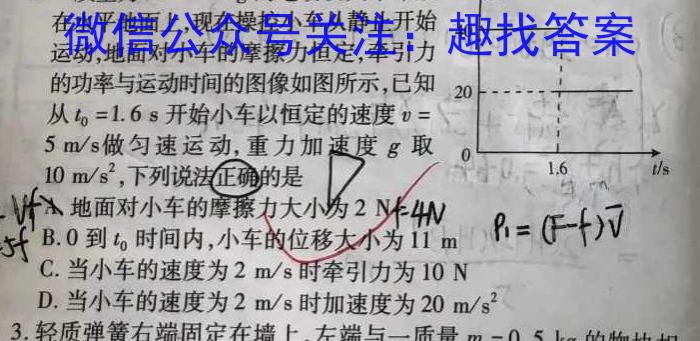 在水平地面上,现在操控小车从静止开始
微信公众号关注:趣找答案
运动,地面对小车的摩擦力恒定,牵引力
的功率与运动时间的图像如图所示,已知
从 t₀ =1.6 s 开始小车以恒定的速度 v =
5 m/s做匀速运动,重力加速度 g 取
10 m/s²,下列说法正确的是
20
0
1.6
t/s
A. 地面对小车的摩擦力大小为 2 N
f=4N
P₁=(F-f)v̄
B. 0 到 t₀ 时间内,小车的位移大小为 11 m
C. 当小车的速度为 2 m/s 时牵引力为 10 N
D. 当小车的速度为 2 m/s 时加速度为 20 m/s²
3. 轻质弹簧右端固定在墙上,左端与一质量 m=0.5 kg 的物块相